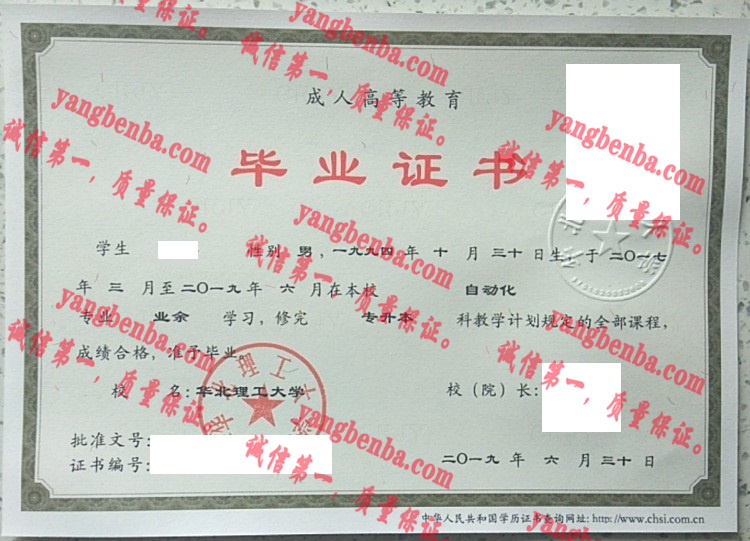 成人高等教育
毕业证书
学生 性别 男，一九九四年 十 月 三十 日生，于 二〇一七
年 三 月至二〇一九年 六 月在本校 自动化
专业 业余 学习，修完 专升本 科教学计划规定的全部课程，
成绩合格，准予毕业。
校 名：华北理工大学 校（院）长：
批准文号：
证书编号： 二〇一九 年 六 月 三十 日
中华人民共和国学历证书查询网址：http://www.chsi.com.cn
yangbenba.com
诚信第一，质量保证。
yangbenba.com
诚信第一，质量保证。
yangbenba.com
诚信第一，质量保证。
yangbenba.com
诚信第一，质量保证。
yangbenba.com
诚信第一，质量保证。
yangbenba.com
诚信第一，质量保证。
yangbenba.com
诚信第一，质量保证。
yangbenba.com
诚信第一，质量保证。